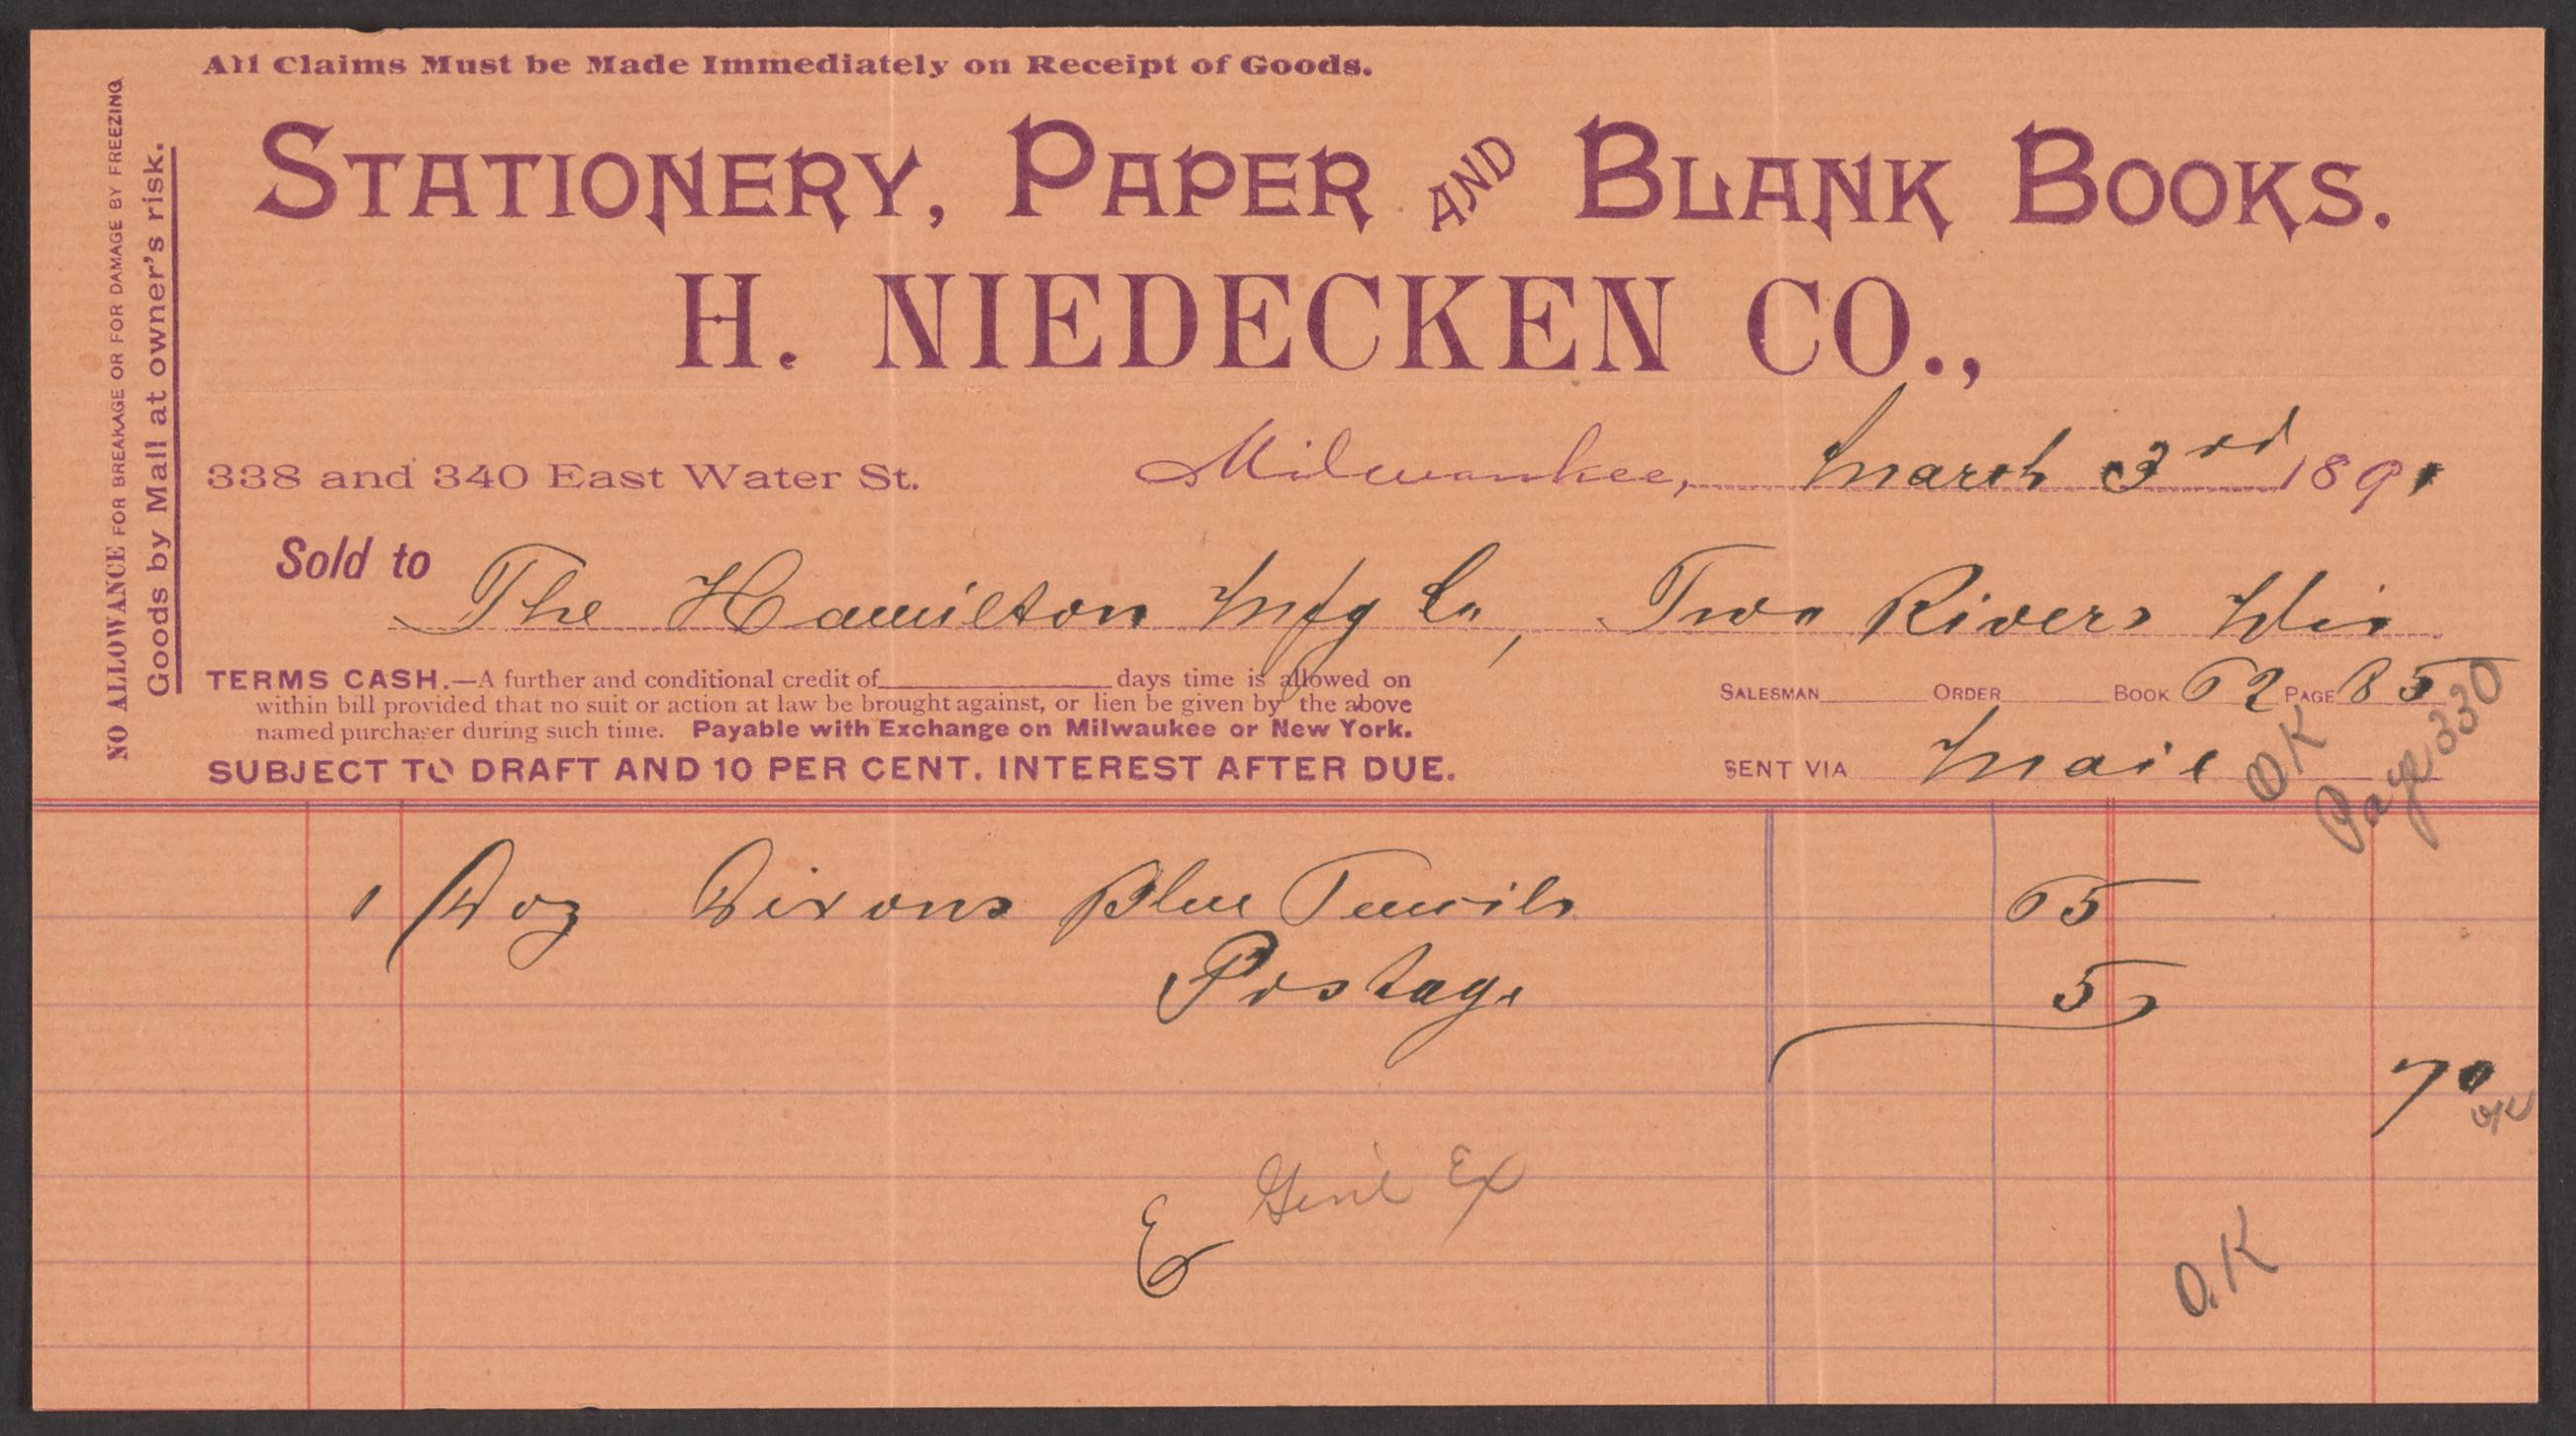 All Claims Must be Made Immediately on Receipt of Goods.
NO ALLOWANCE FOR BREAKAGE OR FOR DAMAGE BY FREEZING
Goods by Mail at owner's risk.
STATIONERY, PAPER AND BLANK BOOKS.
H. NIEDECKEN CO.,
338 and 340 East Water St. Milwaukee, March 3rd 1891
Sold to The Hamilton Mfg Co, Two Rivers Wis
TERMS CASH.—A further and conditional credit of days time is allowed on
within bill provided that no suit or action at law be brought against, or lien be given by the above
named purchaser during such time. Payable with Exchange on Milwaukee or New York.
SUBJECT TO DRAFT AND 10 PER CENT. INTEREST AFTER DUE.
SALESMAN ORDER BOOK 62 PAGE 85
SENT VIA Mail
OK
Page 330
1 Doz Dixons Blue Pencils 65
Postage 5
70
OK
E Genl Ex
O.K